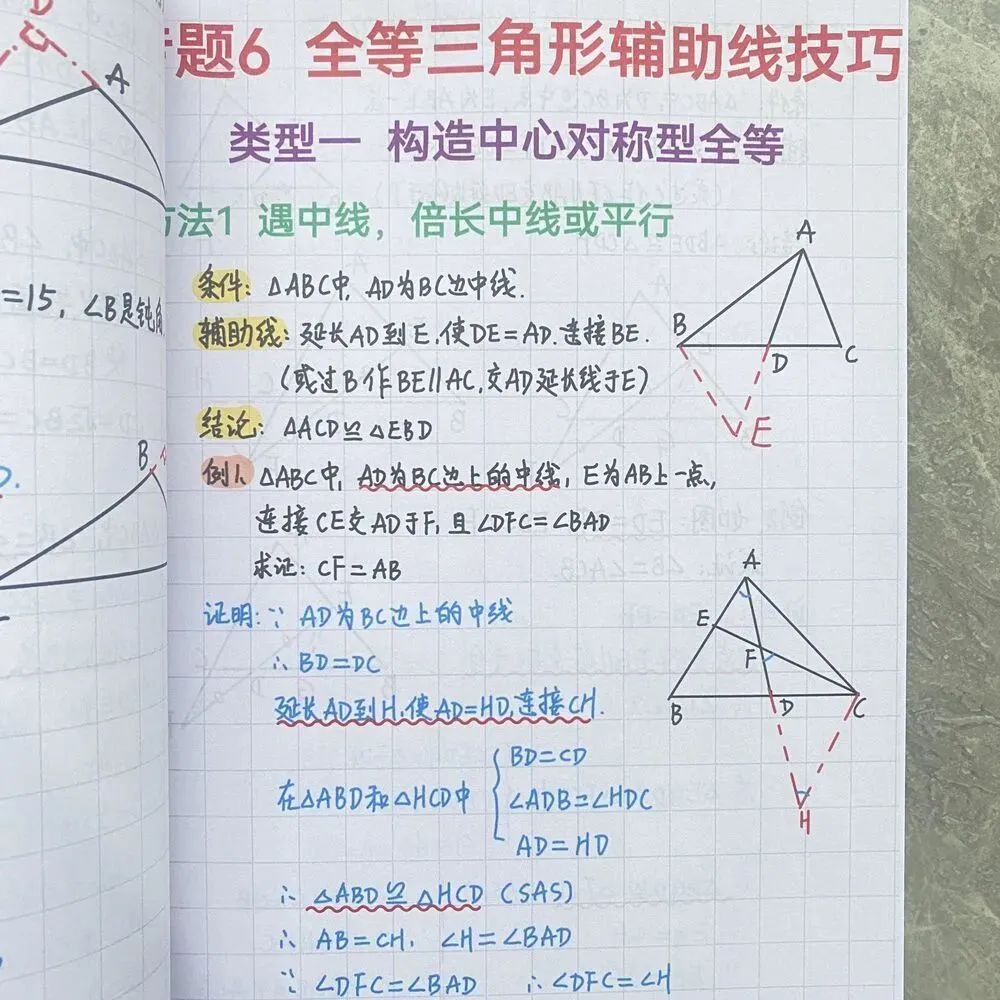 题6 全等三角形辅助线技巧
类型一 构造中心对称型全等
方法1 遇中线，倍长中线或平行
条件: △ABC中, AD为BC边中线.
辅助线: 延长AD到E.使DE=AD.连接BE.
(或过B作BE∥AC,交AD延长线于E)
结论: △ACD≌△EBD
例1、△ABC中, AD为BC边上的中线, E为AB上一点,
连接CE交AD于F, 且∠DFC=∠BAD
求证: CF=AB
证明: ∵ AD为BC边上的中线
∴ BD=DC
延长AD到H.使AD=HD,连接CH.
在△ABD和△HCD中
BD=CD
∠ADB=∠HDC
AD=HD
∴ △ABD≌△HCD (SAS)
∴ AB=CH, ∠H=∠BAD
∵ ∠DFC=∠BAD ∴ ∠DFC=∠H
A
B
D
C
E
A
E
F
B
D
C
H
A
=15, ∠B是钝角
B